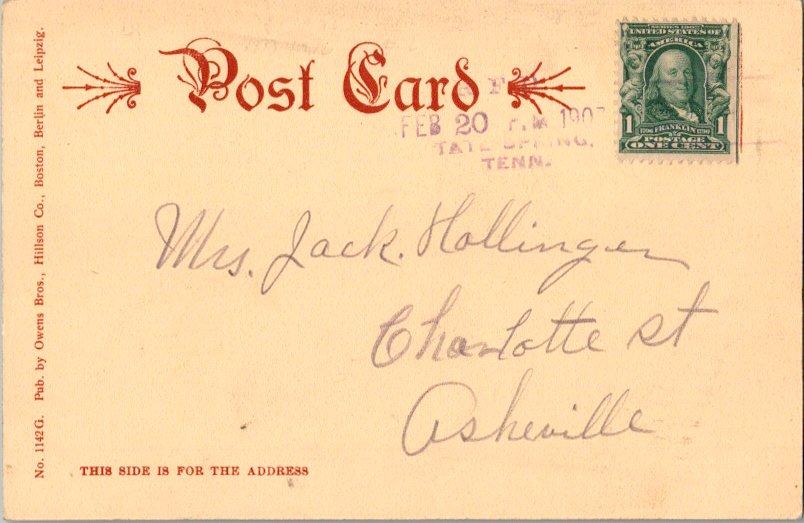 Post Card
SERIES 1902
UNITED STATES OF
AMERICA
1 FRANKLIN 1
POSTAGE
ONE CENT
FEB 20 P.M. 190
TATE SPRING,
TENN.
Mrs. Jack. Hollinger
Charlotte St
Asheville
THIS SIDE IS FOR THE ADDRESS
No. 1142 G. Pub. by Owens Bros., Hillson Co., Boston, Berlin and Leipzig.